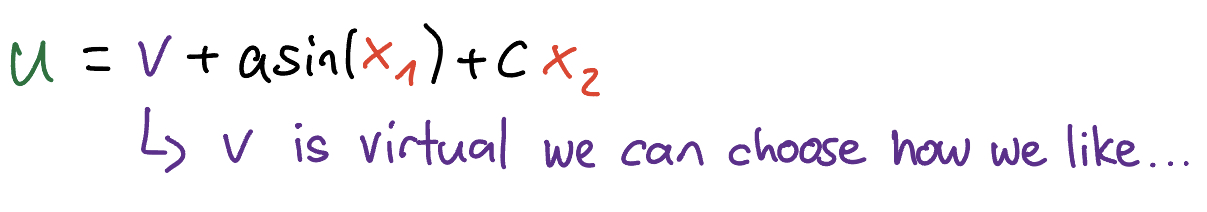 u = v + asin(x₁) + c x₂
↳ v is virtual we can choose how we like...